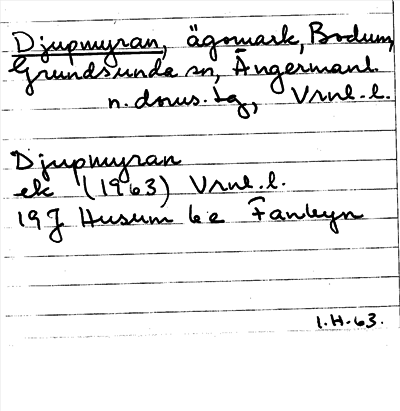 Djupmyran, ägomark, Bodum,
Grundsunda sn, Ångermanl.
n.dnus. tg, Vrnl.l.
Djupmyran
ek (1963) Vrnl.l.
19J Husum 6e Fanbyn
I.H.63.